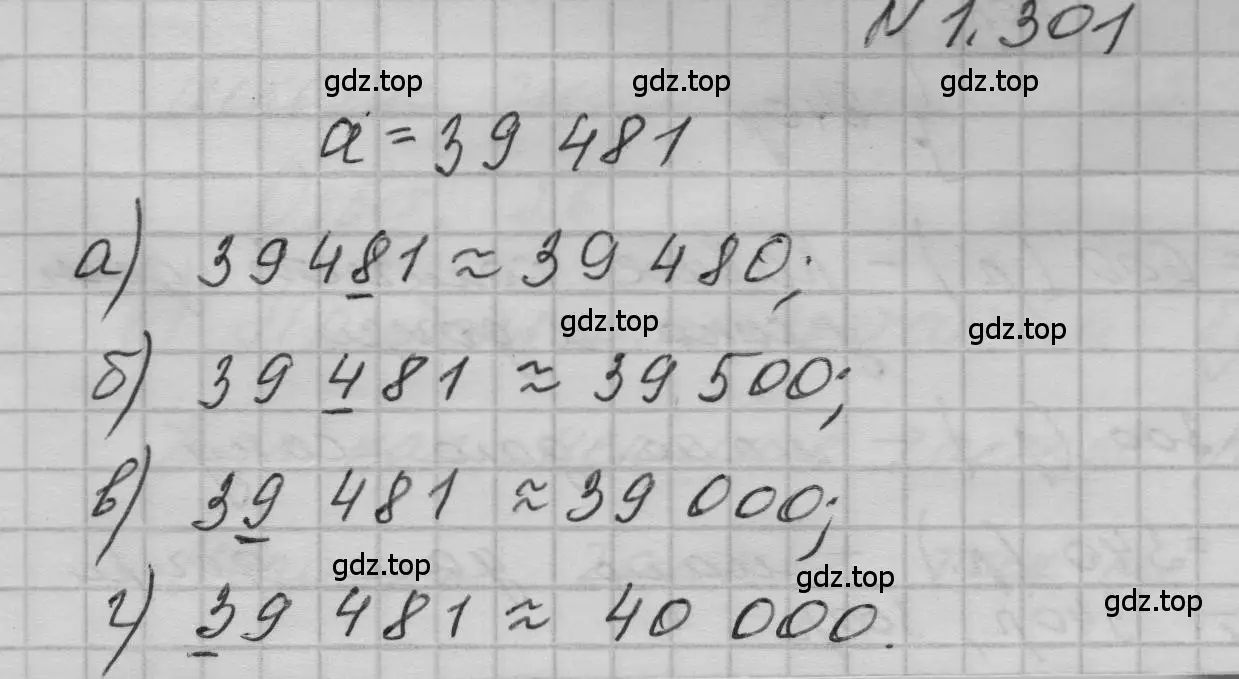 N 1.301
gdz.top gdz.top gdz.top
a = 39 481
а) 39481 ≈ 39 480;
gdz.top gdz.top
б) 39 481 ≈ 39 500;
в) 39 481 ≈ 39 000;
gdz.top gdz.top gdz.top
г) 39 481 ≈ 40 000.